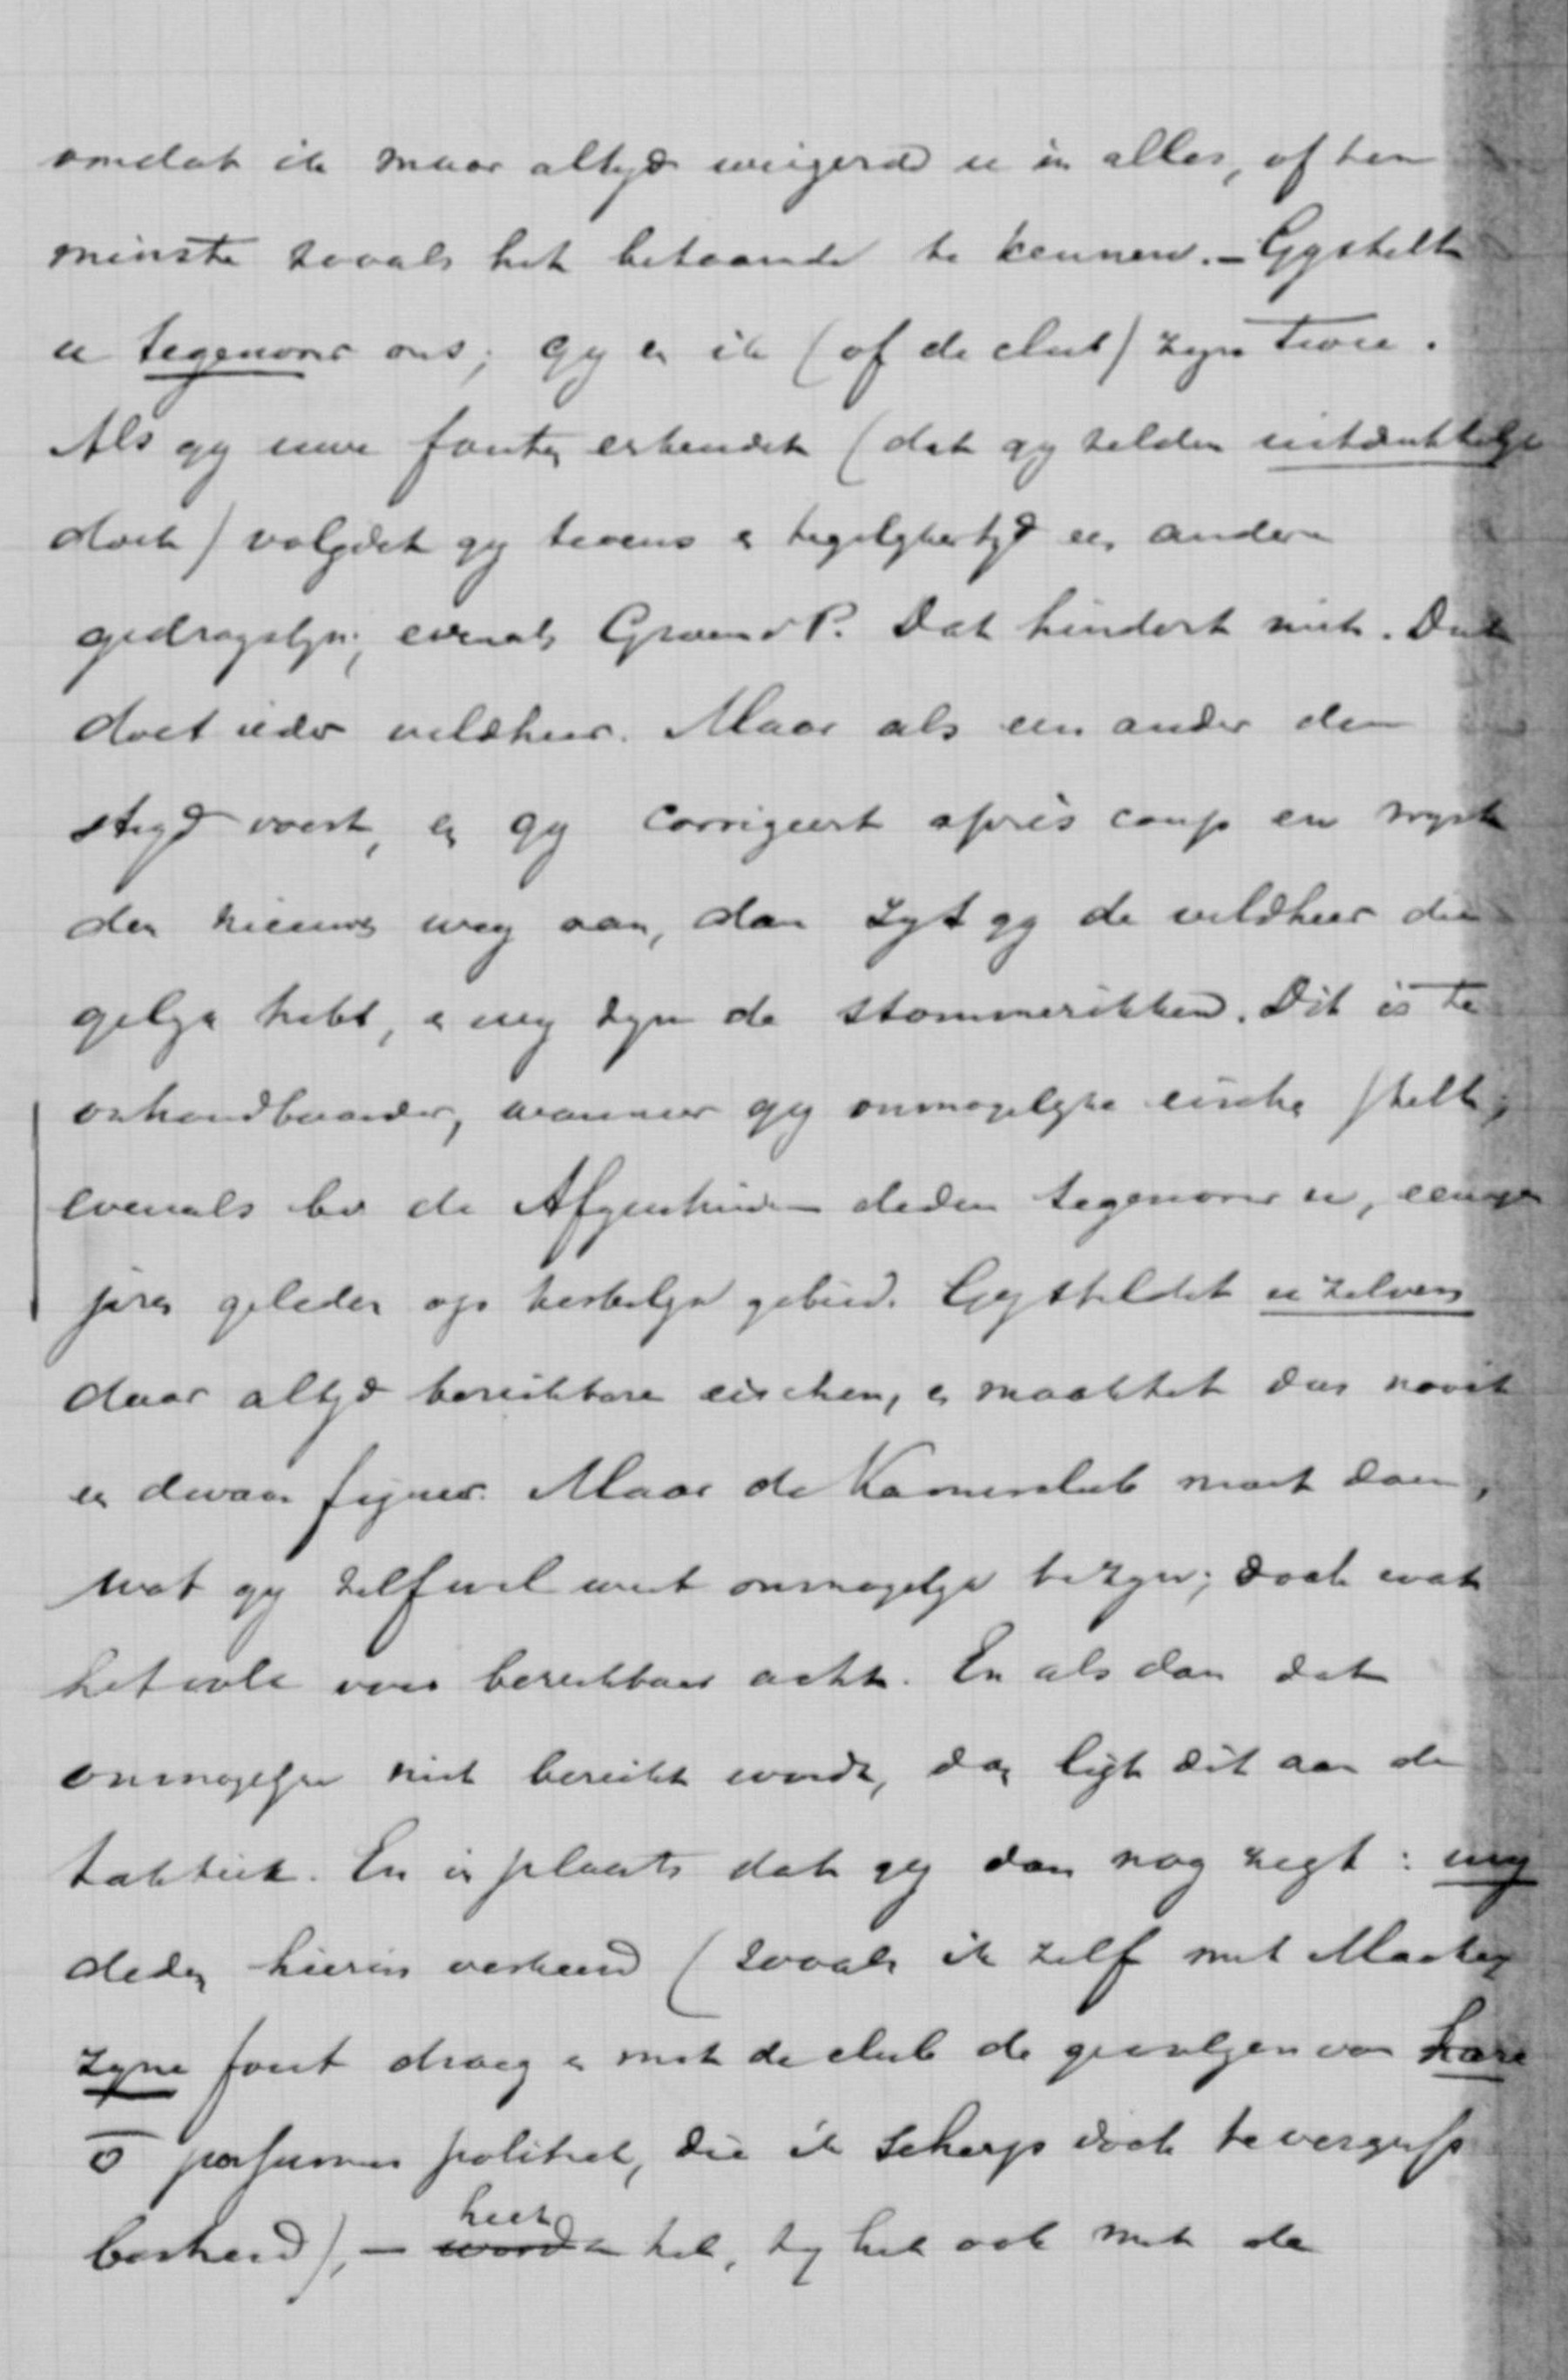 omdat ik maar altyd weigerd u in alles, of ten
minste zooals het betaamde te kennen. – Gy stelt
u tegenover ons; gy en ik (of de club) zyn twee.
Als gy uwe fouten erkendet (dat gy zelden uitdrukkelyk
doet) volgdet gy tevens en tegelykertyd een andere
gedragslyn; evenals Groen v P. Dat hindert niet. Dat
doet ieder veldheer. Maar als een ander den
stryd voert, en gy corrigeert après coup en wyst
den nieuwen weg aan, dan zyt gy de veldheer die
gelyk hebt, en wy zyn de stommerikken. Dit is te
onhoudbaarder, wanneer gy onmogelyke eischen stelt;
evenals bv de Afgescheidenen deden tegenover u, eenige
jaren geleden op kerkelyk gebied. Gy steldet u zelven
daar altyd bereikbare eischen, en maaktet dus nooit
en dwaas figuur. Maar de Kamerclub moet doen,
wat gy zelf wel weet onmogelyk te zyn; doch wat
het volk voor bereikbaar acht. En als dan dat
onmogelyke niet bereikt wordt, dan ligt dit aan de
taktiek. En in plaats dat gy dan nog zegt: wy
deden hierin verkeerd (zooals ik zelf met Mackay
zyne fout draag en met de club de gevolgen van hare
politiek, die ik scherp doch te vergeefs
bestreed), – heet het, ligt het ook met de